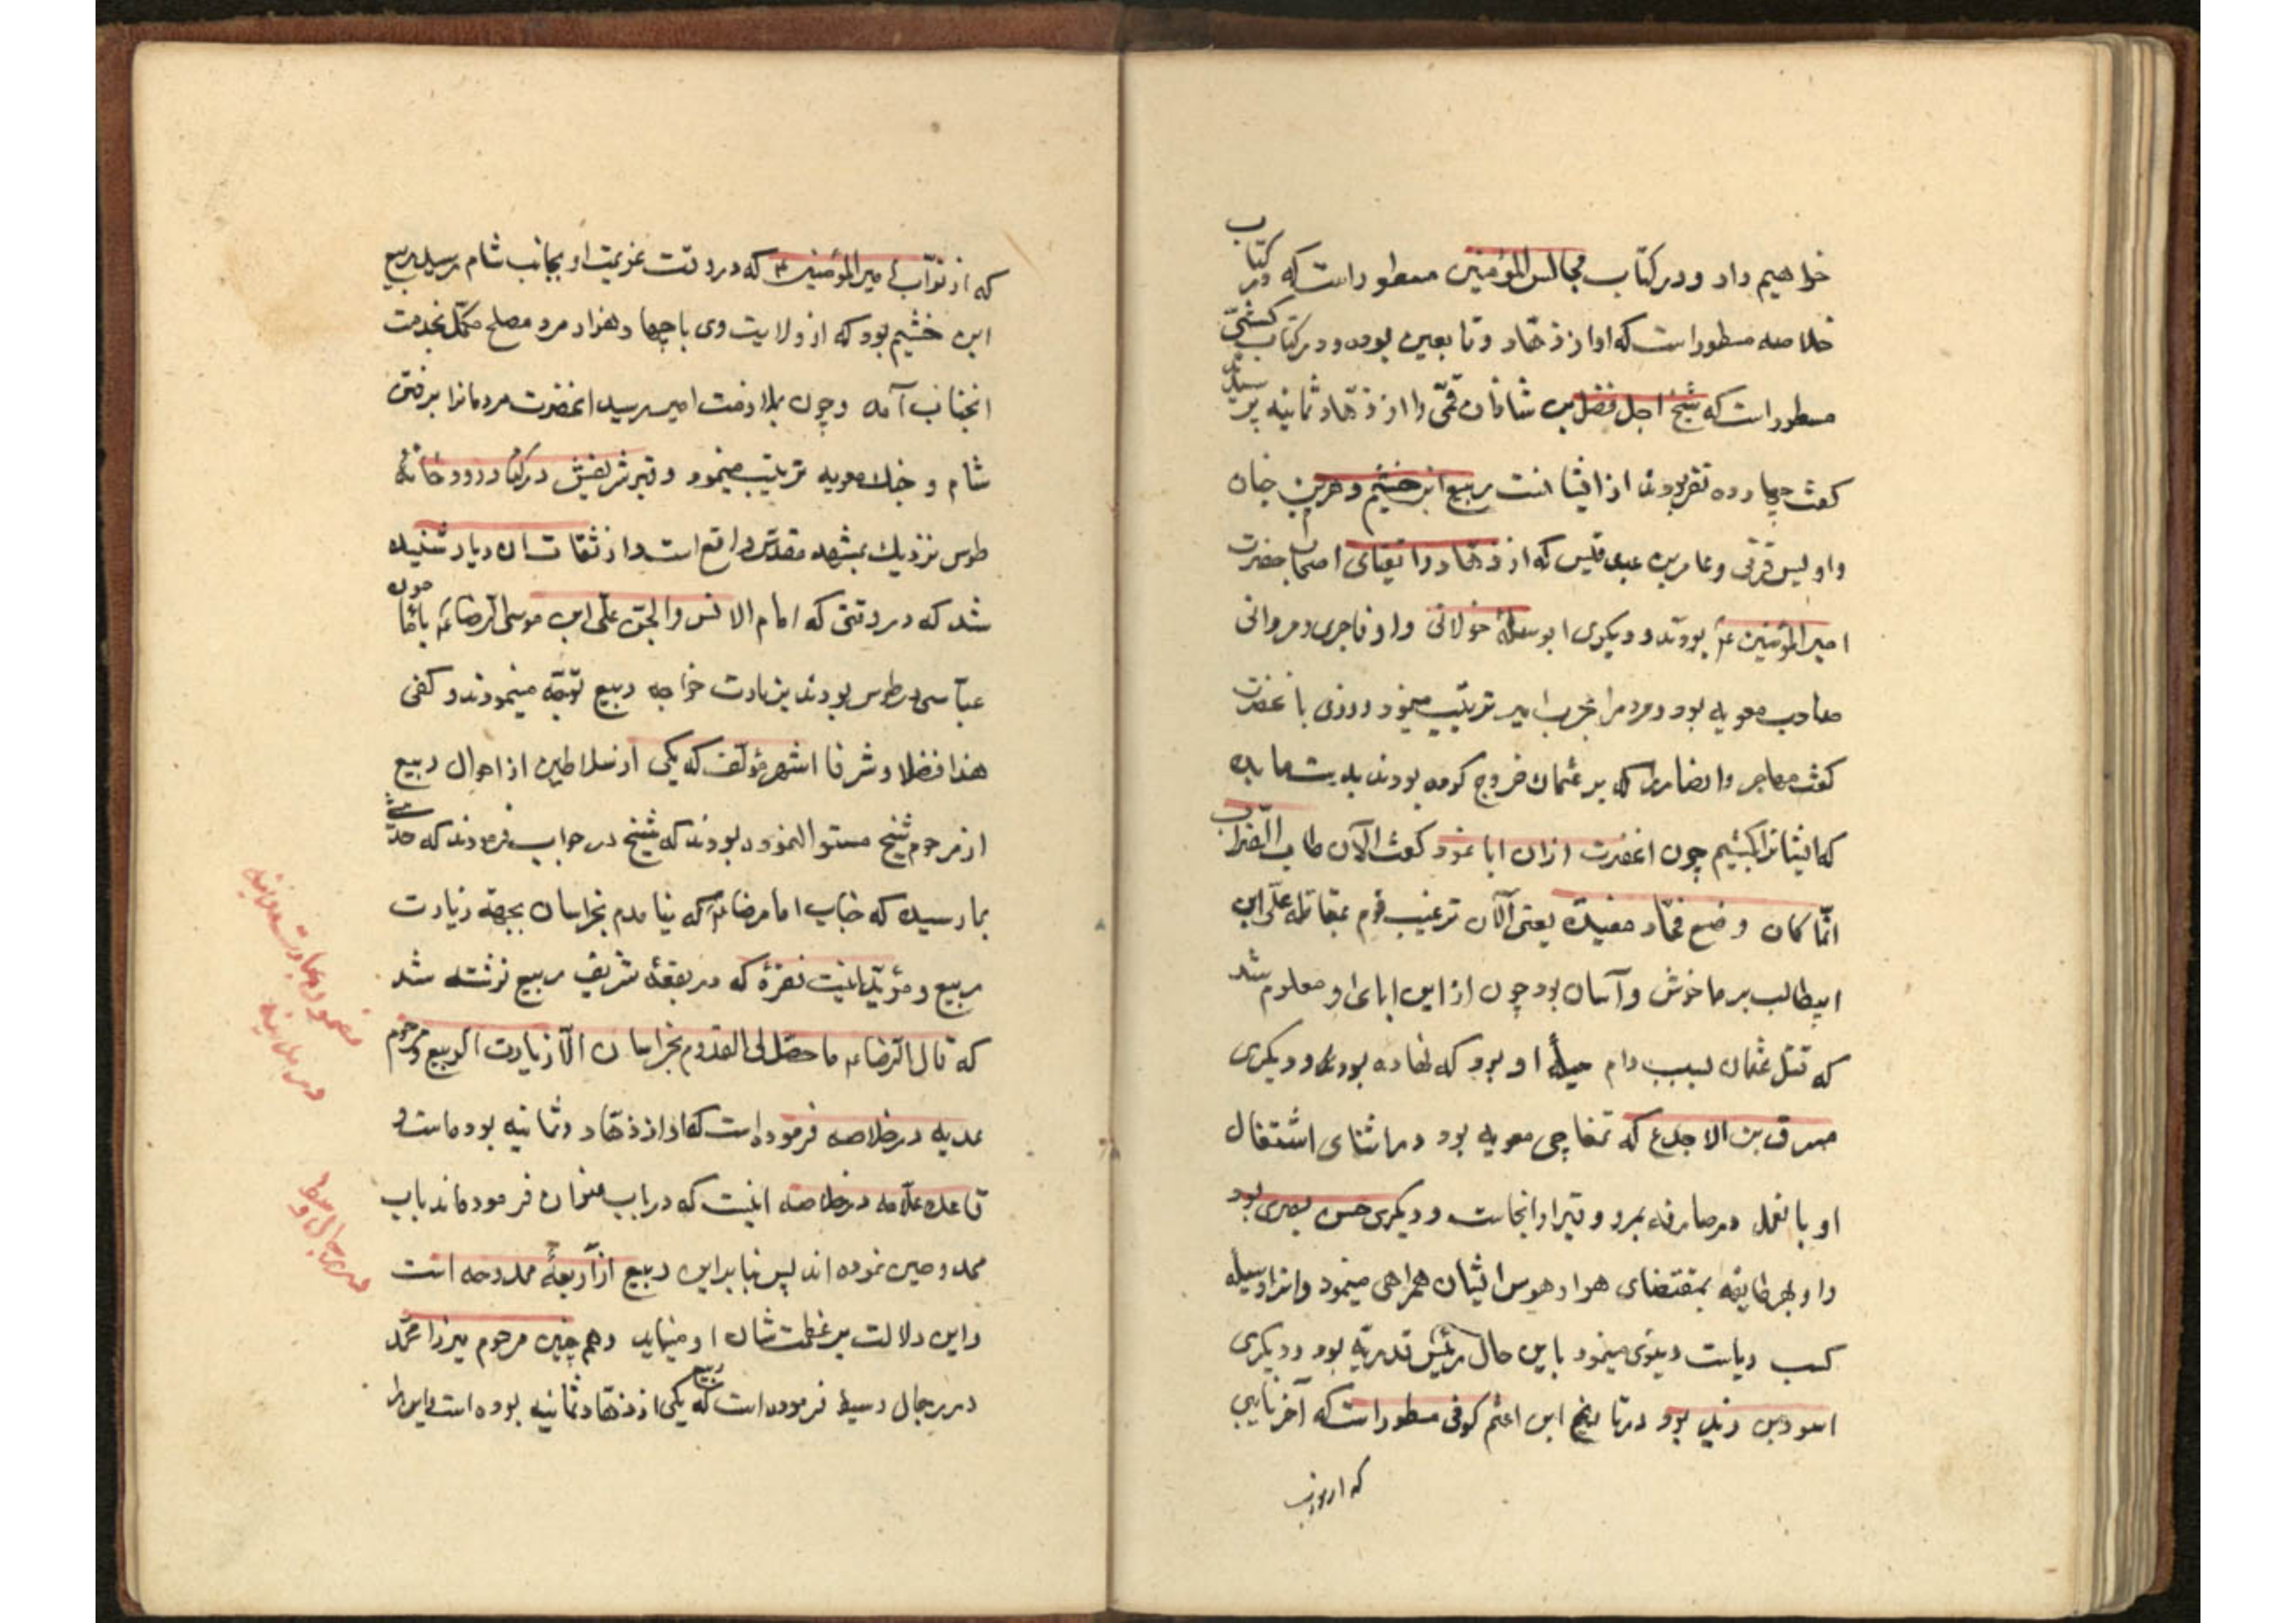 خواهیم داد و در کتاب مجالس المؤمنین مسطور است که در کتاب
خلاصه مسطور است که او از زهّاد و تابعین بوده و در کتاب کشّی
مسطور است که شیخ اجل فضل بن شاذان قمّی را از زهّاد ثمانیه پر
کفت چهارده نفر بودند از ایشانست ربیع ابن خشیم و هرم بن حیان
و اویس قرنی و عامر بن عبد قیس که از زهاد و اتقیای اصحاب حضرت
امیر المؤمنین عم بودند و دیکری ابو مسلم خولانی و او فاجری و مروانی
صاحب معویه بود و مردم را بحرب امیر ترغیب مینمود و روزی با نحضرت
کفت مهاجر و انصار را که بر عثمان خروج کرده بودند بدست ما بده
که ایشانرا بکشیم چون انحضرت ازان ابا نمود کفت الآن طاب الضراب
انّما کان وضع فخّار مفیده یعنی الآن ترغیب قوم بمقاتله علّی ابن
ابیطالب بر ما خوش و آسان بود چون از این ابای او معلوم شد
که قتل عثمان بسبب دام حیلهٔ او بود که نهاده بود و دیکری
مسرق بن الاجدع که تمغاچی معویه بود در اثنای اشتغال
او بانعمل در صارفه بمرد و قبر او انجاست و دیکری حسن بصری بود
و او بهر طایفه بمقتضای هوا و هوس ایشان همراهی مینمود و انرا وسیله
کسب ریاست دینوی مینمود با این حال رئیس قدریّه بود و دیکری
اسود بن زید بود در تاریخ ابن اعثم کوفی مسطور است که آخر نایبی
که از نواب
که از نوّاب امیر المؤمنین ع که در وقت عزیمت او بجانب شام رسید ربیع
ابن خشیم بود که از ولایت وی با چهار هزار مرد مصلح مکمّل بخدمت
انجناب آمده و چون بملازمت امیر رسید انحضرت مردمانرا برفتن
شام و جدال معویه ترغیب مینمود و قبر شریفش در کنار رودخانهٔ
طوس نزدیك بمشهد مقدّس واقع است و از ثقات ان دیار شنیده
شد که در وقتی که امام الانس والجن علّی ابن موسی الرضا عم با مأمون
عبّاسی در طوس بودند بزیارت خواجه ربیع توجّه مینمودند و کفی
هذا فضلا و شرفا اشهر مؤلّف که یکی از سلاطین از احوال ربیع
از مرحوم شیخ مستوال نموده بودند که شیخ در جواب فرمودند که حدیث
بما رسیده که جناب امام رضا عم که نیامدم بخراسان بجهة زیارت
ربیع و مؤیّد اینست نقرهٔ که در بقعهٔ شریف ربیع نوشته شد
که قال الرضا عم ما حصّل لی القدوم بخراسان الّا زیارت الربیع و مرحوم
عدیه در خلاصه فرموده است که او از زهّاد و ثمانیه بوده است و
قاعده علّامه در خلاصه اینست که در باب عنوان فرموده اند باب
ممدوحین نموده اند پس بنابراین ربیع از اربعهٔ ممدوحه است
و این دلالت بر عظمت شان او مینماید و هم چنین مرحوم میرزا محمّد
در رجال وسیط فرموده است که ربیع یکی از زهّاد ثمانیه بوده است و این
در رجال وسط